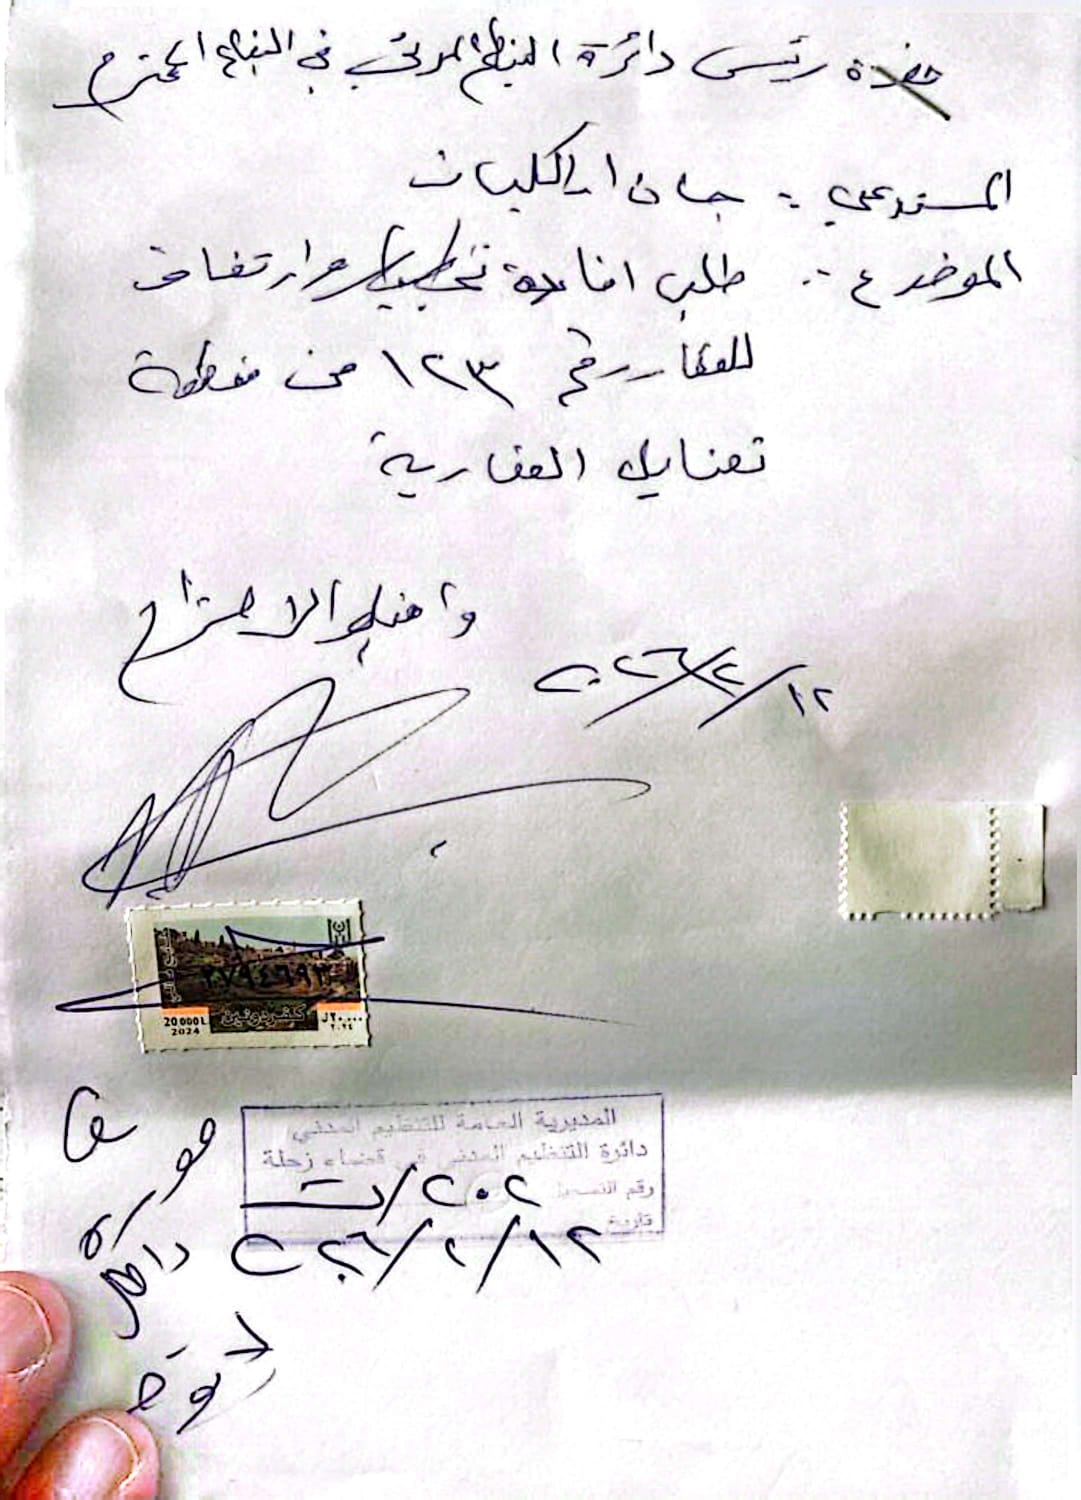 حضرة رئيس دائرة التنظيم المدني في البقاع المحترم
المستدعي : جان اراكليان
الموضوع : طلب افادة تخطيط وارتفاق
للعقار رقم ١٢٣ من منطقة
تعنايل العقارية
واقبلوا الاحترام
١٢/٢/٢٠٢٦
لبنان
٢٧٩٤٦٩٣
كفردونين
20 000 L.
2024
٢٠٠٠٠ ل.
٢٠٢٤
المديرية العامة للتنظيم المدني
دائرة التنظيم المدني في قضاء زحلة
رقم التسجيل ٢٠٢/ت
تاريخ ١٢/٢/٢٠٢٦